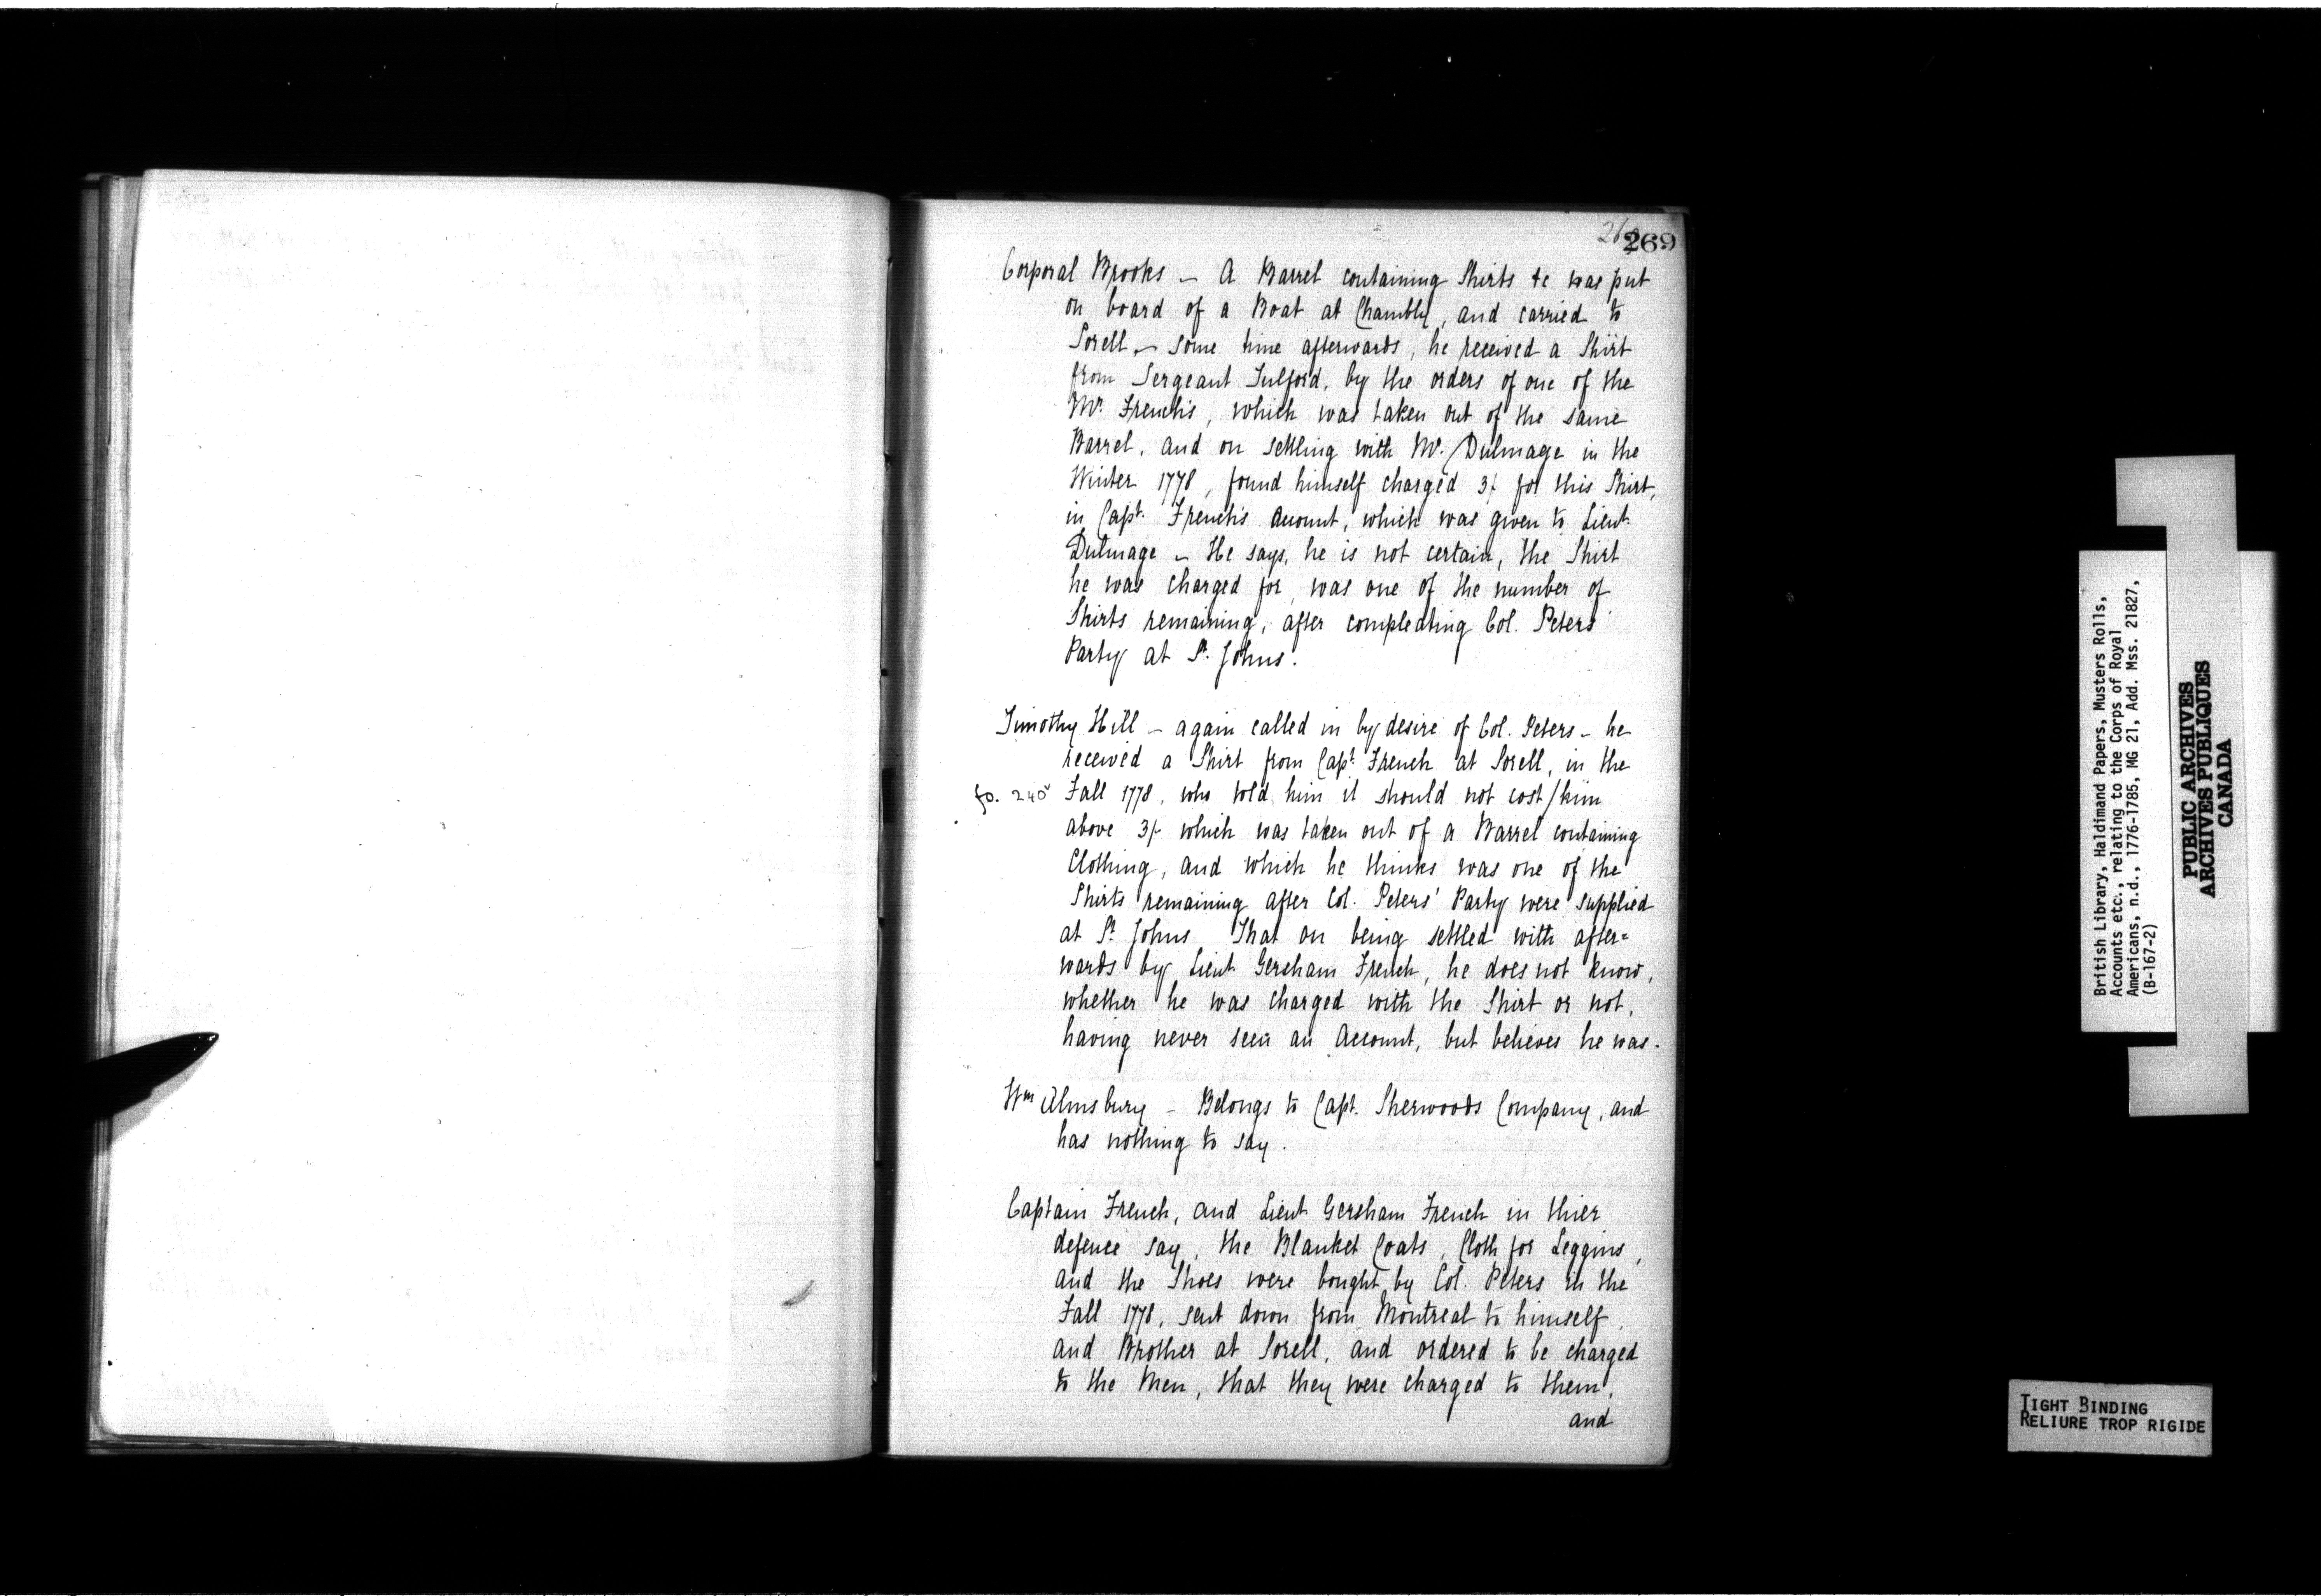 269
Corporal Brooks – A Barrel containing Shirts &c was put
on board of a Boat at Chambly, and carried to
Sorell – some time afterwards, he received a Shirt
from Sergeant Tulford, by the orders of one of the
Mr. French's, which was taken out of the same
Barrel, and on settling with Mr. Dulmage in the
Winter 1778, found himself charged 3/- for this Shirt,
in Capt. French's Account, which was given to Lieut.
Dulmage – He says, he is not certain, the Shirt
he was charged for, was one of the number of
Shirts remaining, after compleating Col. Peters'
Party at St. Johns.
Timothy Hill – again called in by desire of Col. Peters – he
received a Shirt from Capt. French at Sorell, in the
fo. 240v Fall 1778, who told him it should not cost / him
above 3/- which was taken out of a Barrel containing
Clothing, and which he thinks was one of the
Shirts remaining after Col. Peters' Party were supplied
at St. Johns That on being settled with after=
wards by Lieut. Gersham French, he does not know,
whether he was charged with the Shirt or not,
having never seen an Account, but believes he was.
Wm Almsbury – Belongs to Capt. Sherwoods Company, and
has nothing to say.
Captain French, and Lieut Gersham French in thier
defence say, the Blanket Coats, Cloth for Leggins,
and the Shoes were bought by Col. Peters in the
Fall 1778, sent down from Montreal to himself,
and Brother at Sorell, and ordered to be charged
to the Men, that they were charged to them,
and
British Library, Haldimand Papers, Musters Rolls,
Accounts etc., relating to the Corps of Royal
Americans, n.d., 1776-1785, MG 21, Add. Mss. 21827,
(B-167-2)
PUBLIC ARCHIVES
ARCHIVES PUBLIQUES
CANADA
TIGHT BINDING
RELIURE TROP RIGIDE